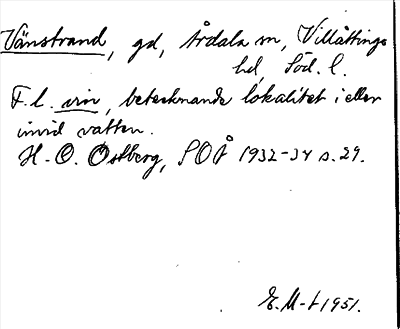 Vänstrand, gd, Årdala sn, Villåttinge
hd, Söd. l.
F. l. vin, betecknande lokalitet i eller
invid vatten.
H. O. Östberg, SOÅ 1932-34 s. 29.
E. M-t 1951.